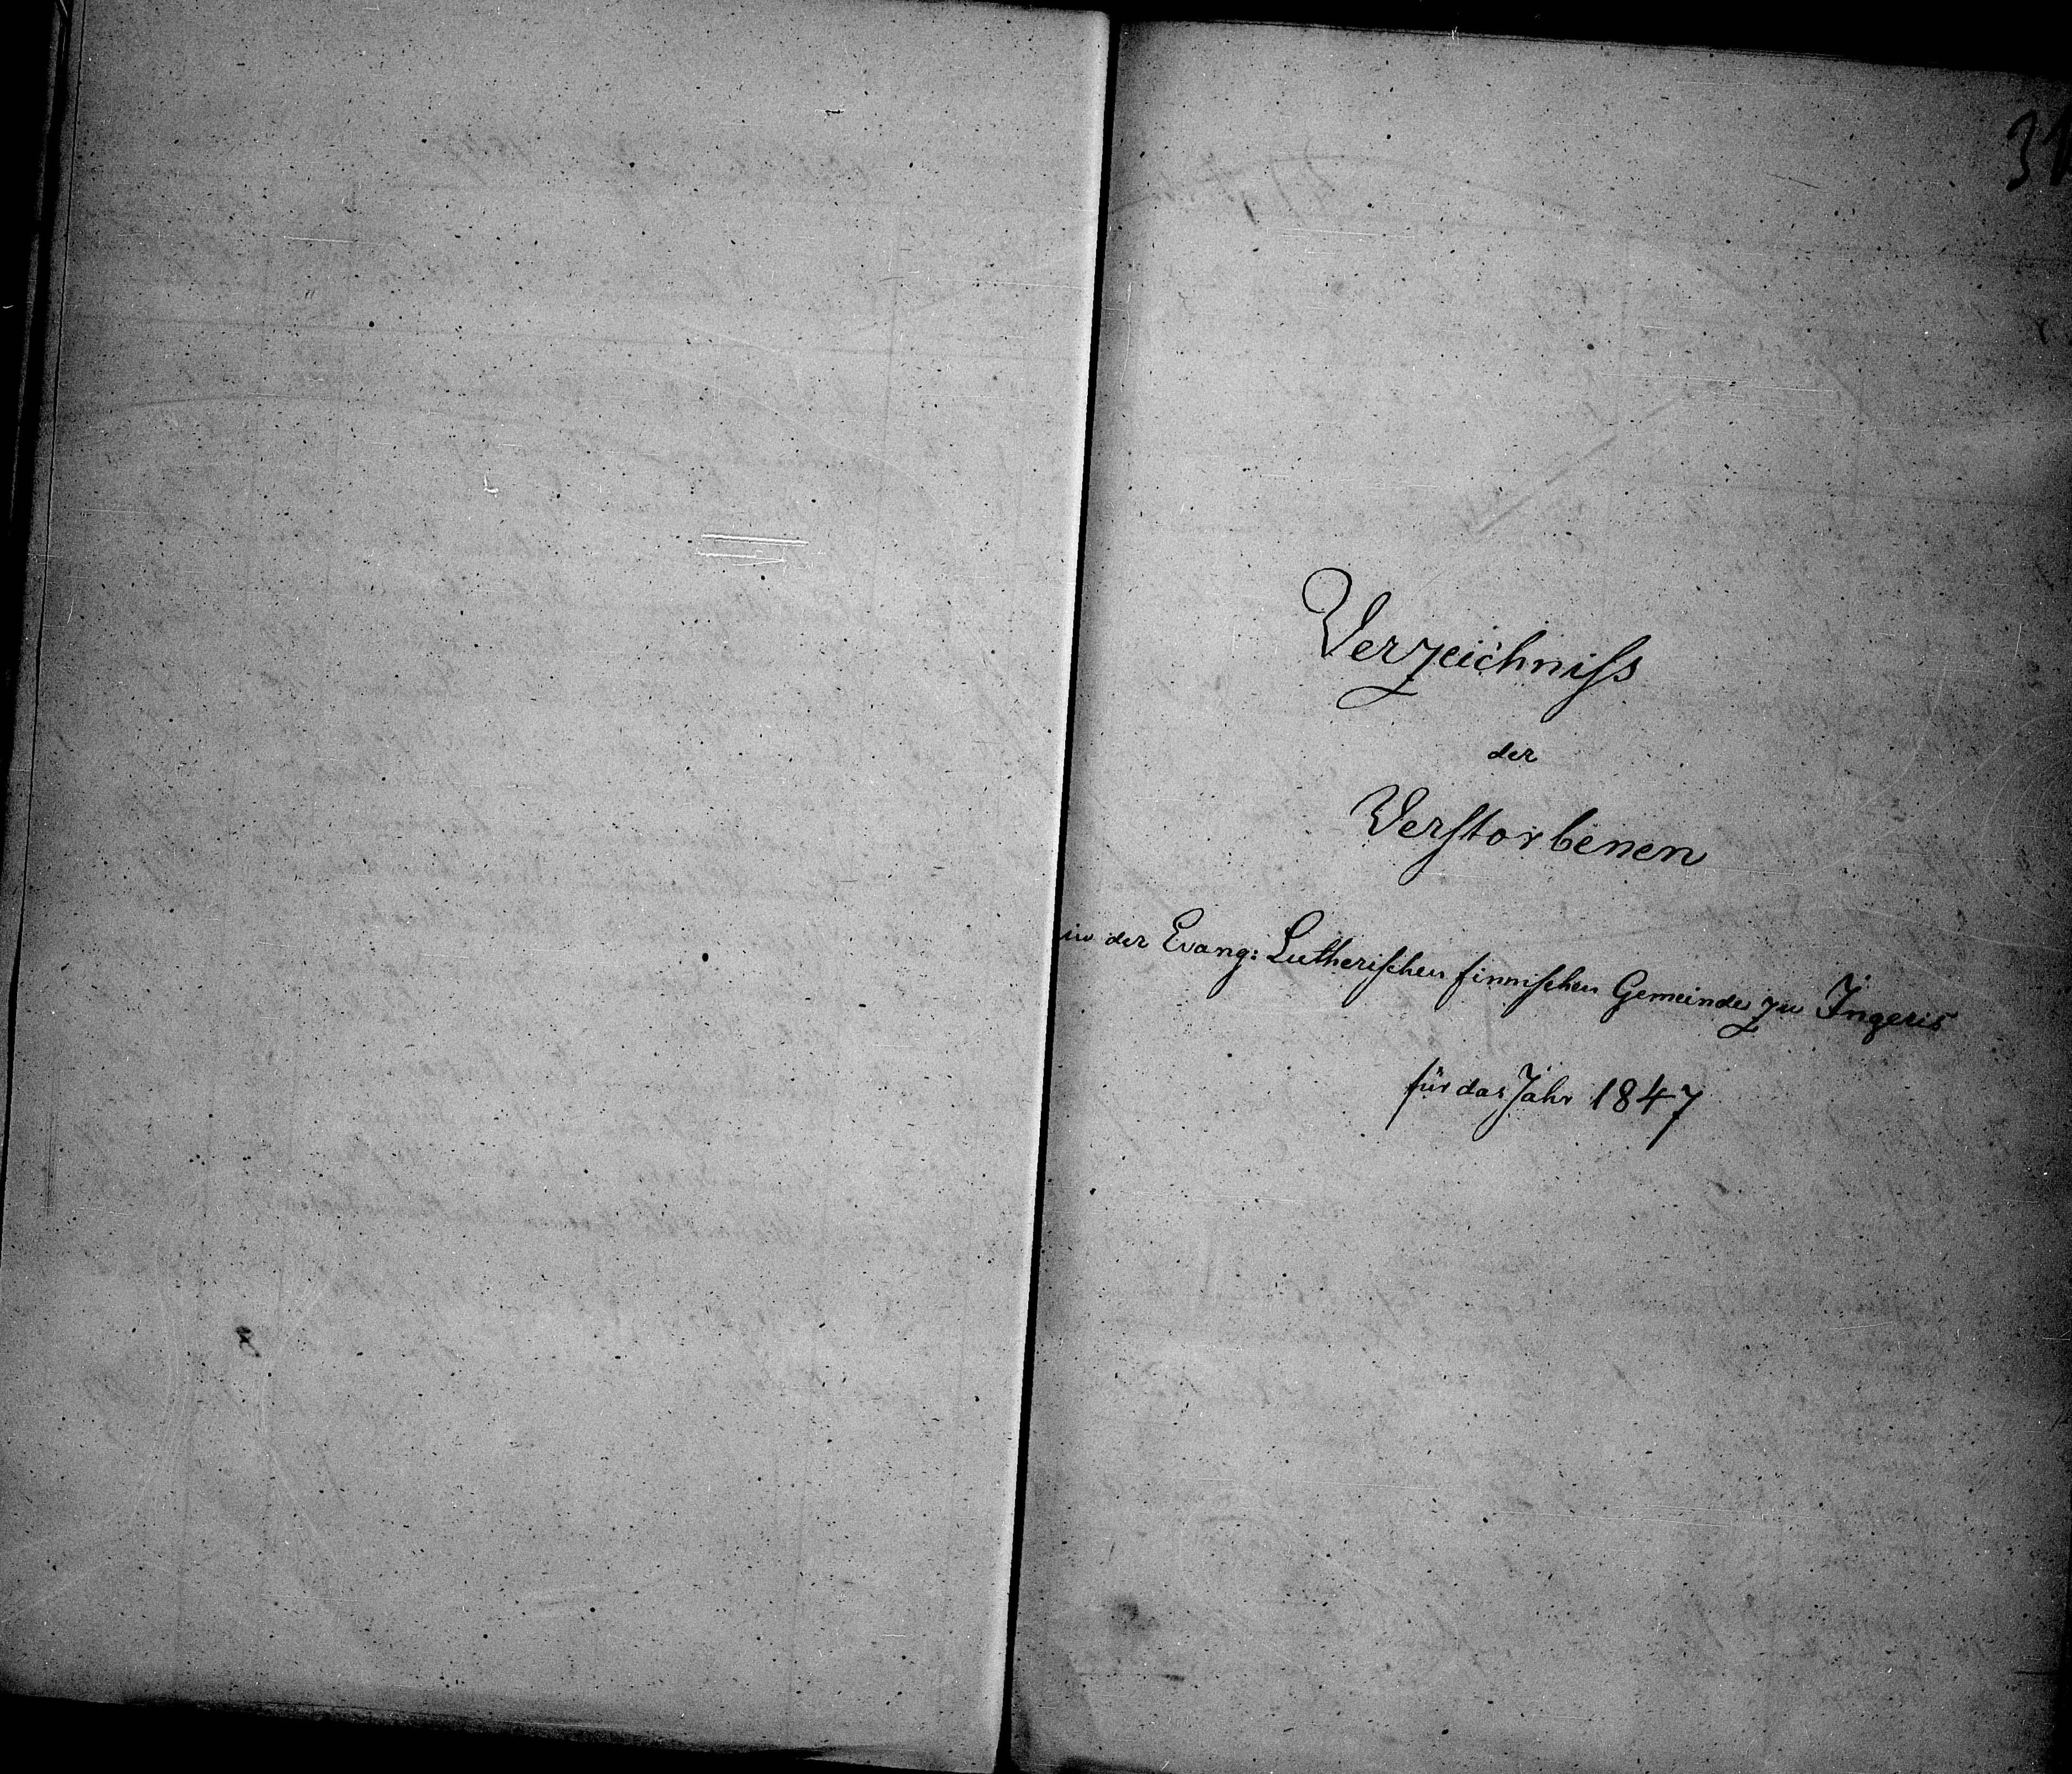 Verzeichniss
der
Verstorbenen
in der Evang: Lutherischen finnischen Gemeinde zu Ingeris
für das Jahr 1847